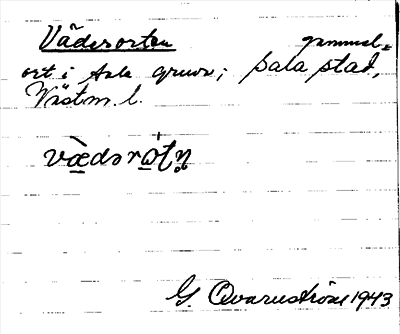 Väderorten gammal-
ort i Sala gruva; Sala stad,
Västm. l.
væ̀dərω̣tn̥
G. Qvarnström 1943